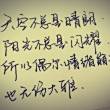 天空不总是晴朗
阳光不总是闪耀
所以偶尔情绪崩溃
也无伤大雅.